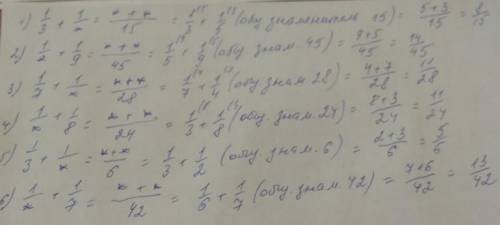 1) 1/3 + 1/x = (x + x)/15 = 1/3 + 1/5 (общ знаменатель 15) = (5+3)/15 = 8/15
2) 1/x + 1/9 = (x + x)/45 = 1/5 + 1/9 (общ. знам. 45) = (9+5)/45 = 14/45
3) 1/7 + 1/x = (x + x)/28 = 1/7 + 1/4 (общ. знам 28) = (4+7)/28 = 11/28
4) 1/x + 1/8 = (x + x)/24 = 1/3 + 1/8 (общ. знам. 24) = (8+3)/24 = 11/24
5) 1/3 + 1/x = (x+x)/6 = 1/3 + 1/2 (общ. знам. 6) = (2+3)/6 = 5/6
6) 1/x + 1/7 = (x + x)/42 = 1/6 + 1/7 (общ. знам. 42) = (7+6)/42 = 13/42